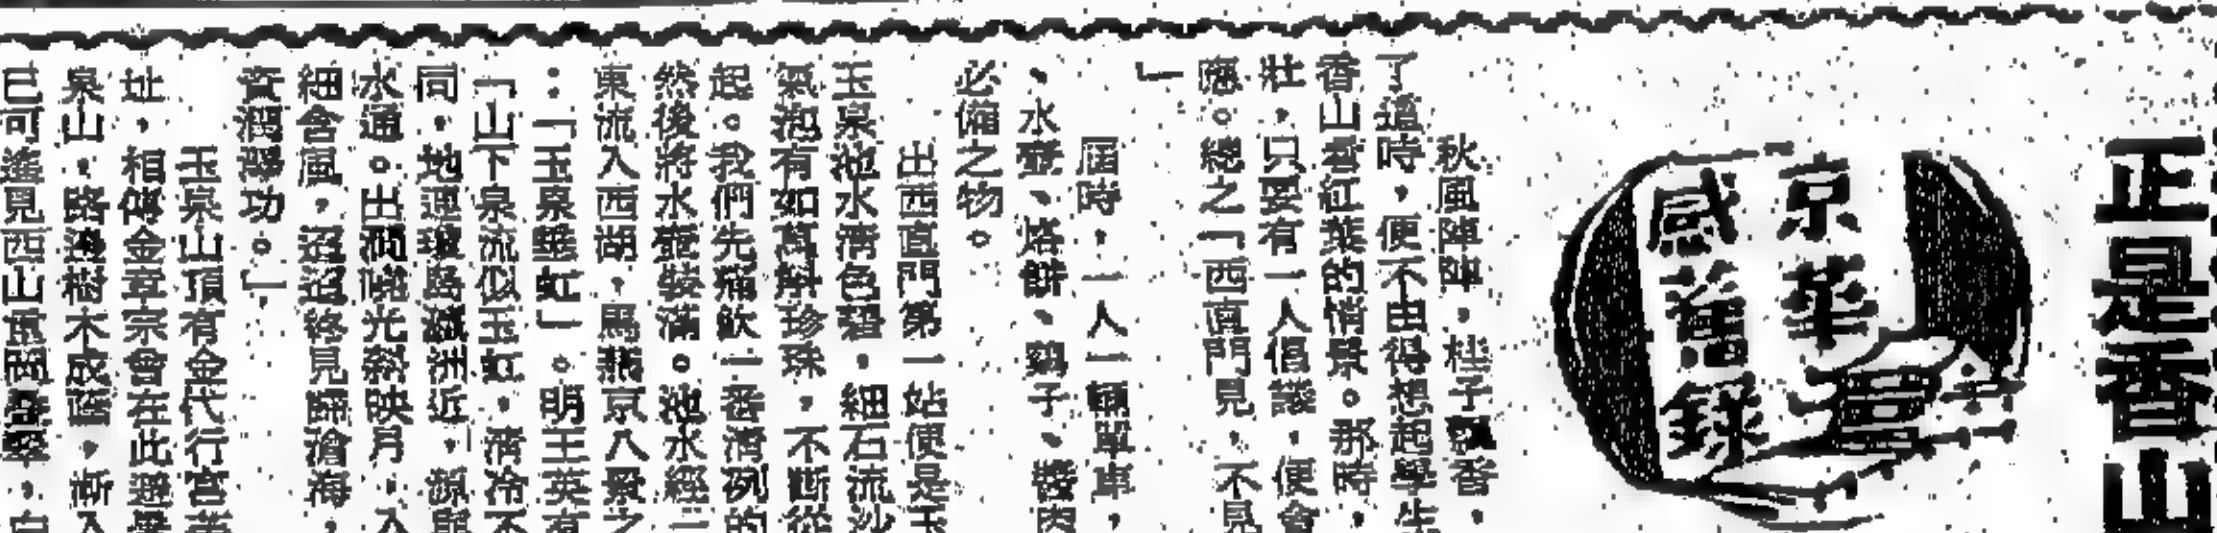 正是香山
京華
感舊錄
秋風陣陣，桂子飄香，
了這時，便不由得想起學生
香山看紅葉的情景。那時，
壯，只要有一人倡議，便會
應。總之「西直門見，不見
」
屆時，一人一輛單車，
、水壺、烙餅、鷄子、醬肉
必備之物。
出西直門第一站便是玉
玉泉池水清色碧，細石流沙
氣泡有如萬斛珍珠，不斷從
起。我們先痛飲一番清冽的
然後將水壺裝滿。池水經二
東流入西湖，爲燕京八景之
：「玉泉垂虹」。明王英有
「山下泉流似玉虹，清冷不
同，地連瓊島瀛洲近，源與
水通。出澗曉光斜映月，入
細含風，迢迢終見歸滄海，
資潤澤功。」
玉泉山頂有金代行宮芙
址，相傳金章宗會在此避暑
泉山，路邊樹木成蔭，漸入
已可遙見西山重岡叠翠，白